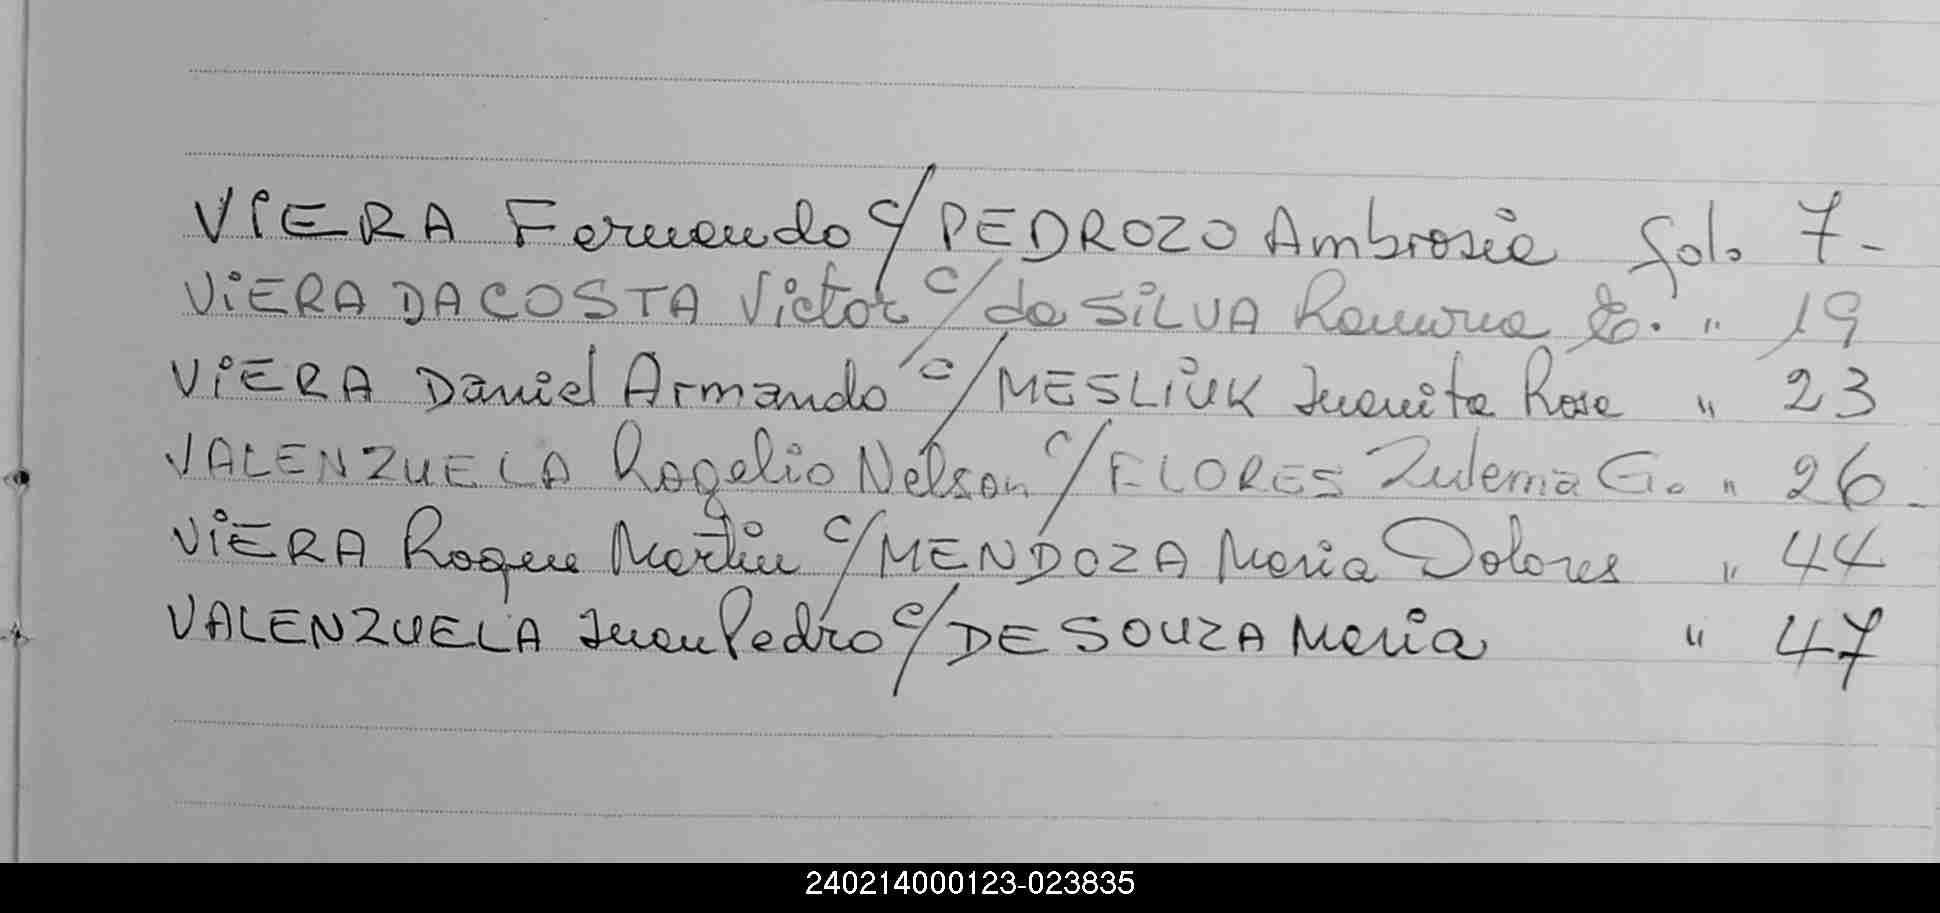 VIERA Fernando c/ PEDROZO Ambrosia fol. 7-
VIERA DA COSTA Victor c/ da SILVA Ramona " 19
VIERA Daniel Armando c/ MESLIUK Juanita Rosa " 23
VALENZUELA Rogelio Nelson c/ FLORES Zulema G. " 26-
VIERA Roque Martin c/ MENDOZA Maria Dolores " 44
VALENZUELA Juan Pedro c/ DE SOUZA Maria " 47
240214000123-023835